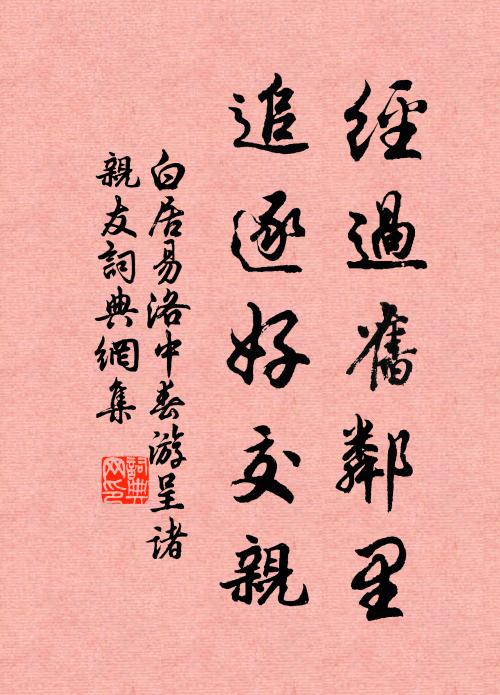 經過舊鄰里
追逐好交親
白居易洛中春游呈諸
親友詞典網集
詞典網印